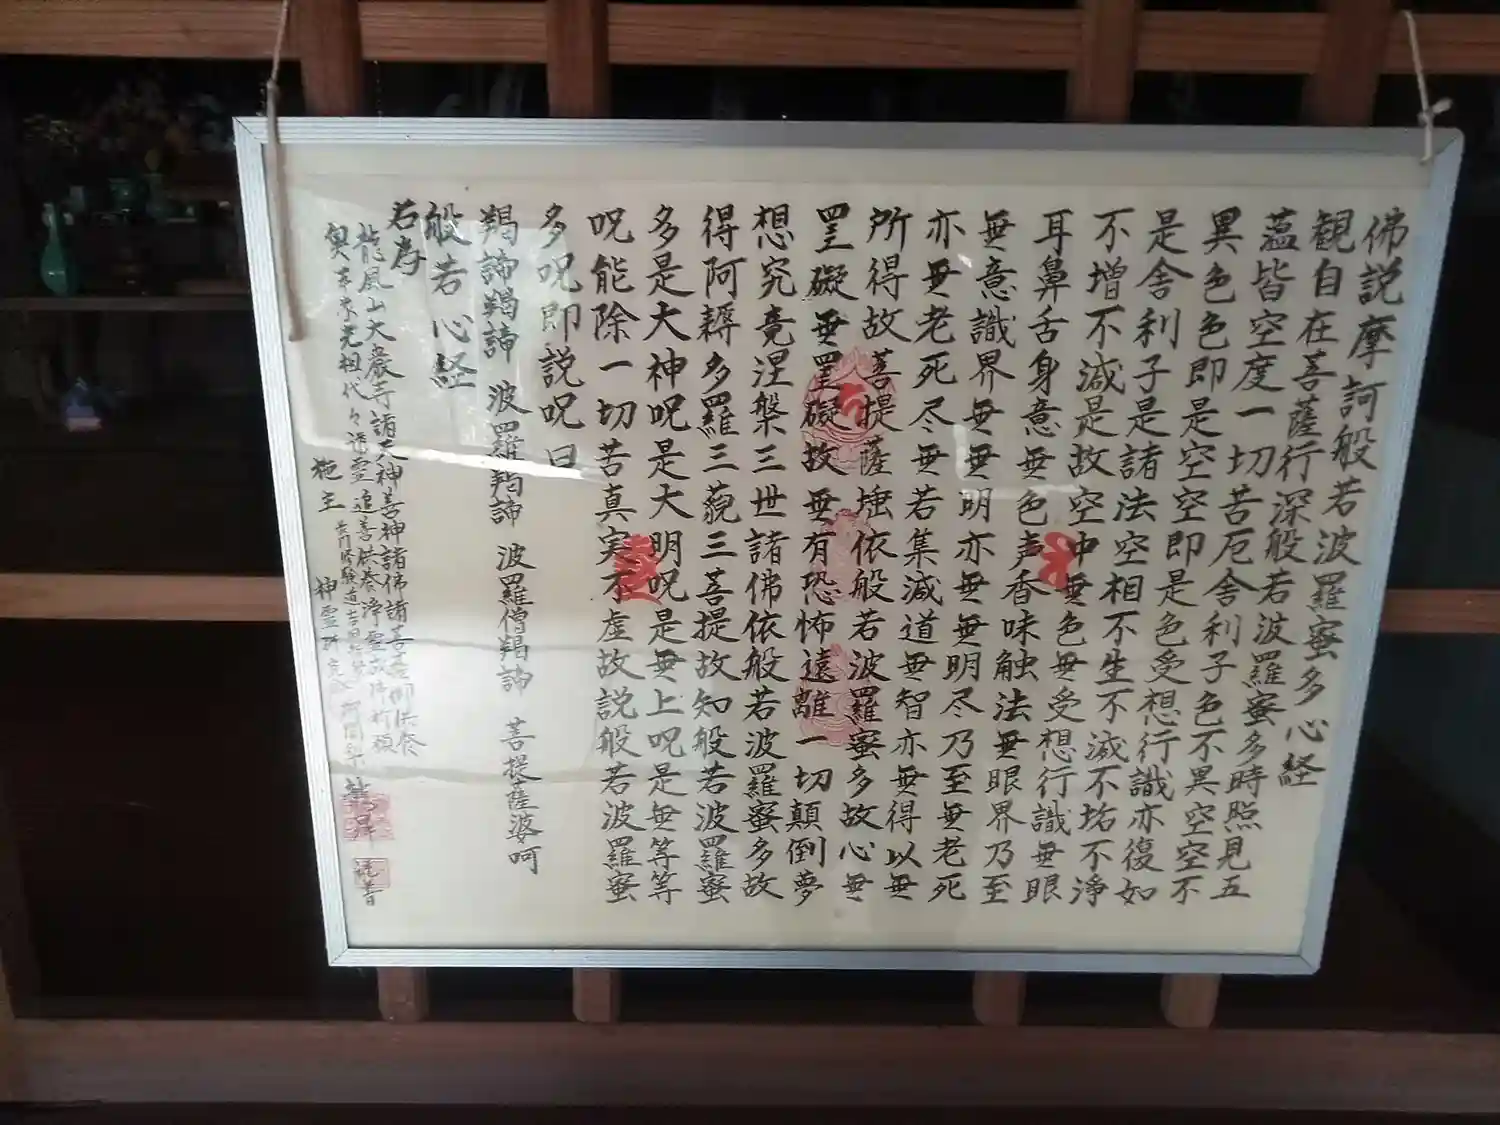 佛説摩訶般若波羅蜜多心経
観自在菩薩行深般若波羅蜜多時照見五
蘊皆空度一切苦厄舎利子色不異空空不
異色色即是空空即是色受想行識亦復如
是舎利子是諸法空相不生不滅不垢不浄
不増不減是故空中無色無受想行識無眼
耳鼻舌身意無色声香味触法無眼界乃至
無意識界無無明亦無無明尽乃至無老死
亦無老死尽無苦集滅道無智亦無得以無
所得故菩提薩埵依般若波羅蜜多故心無
罣礙無罣礙故無有恐怖遠離一切顛倒夢
想究竟涅槃三世諸佛依般若波羅蜜多故
得阿耨多羅三藐三菩提故知般若波羅蜜
多是大神呪是大明呪是無上呪是無等等
呪能除一切苦真実不虚故説般若波羅蜜
多呪即説呪曰
羯諦羯諦 波羅羯諦 波羅僧羯諦 菩提薩婆呵
般若心経
龍風山大厳寺諸天神善神諸佛諸菩薩御供養
先祖代々諸霊追善供養浄霊
施主
神霊研究会